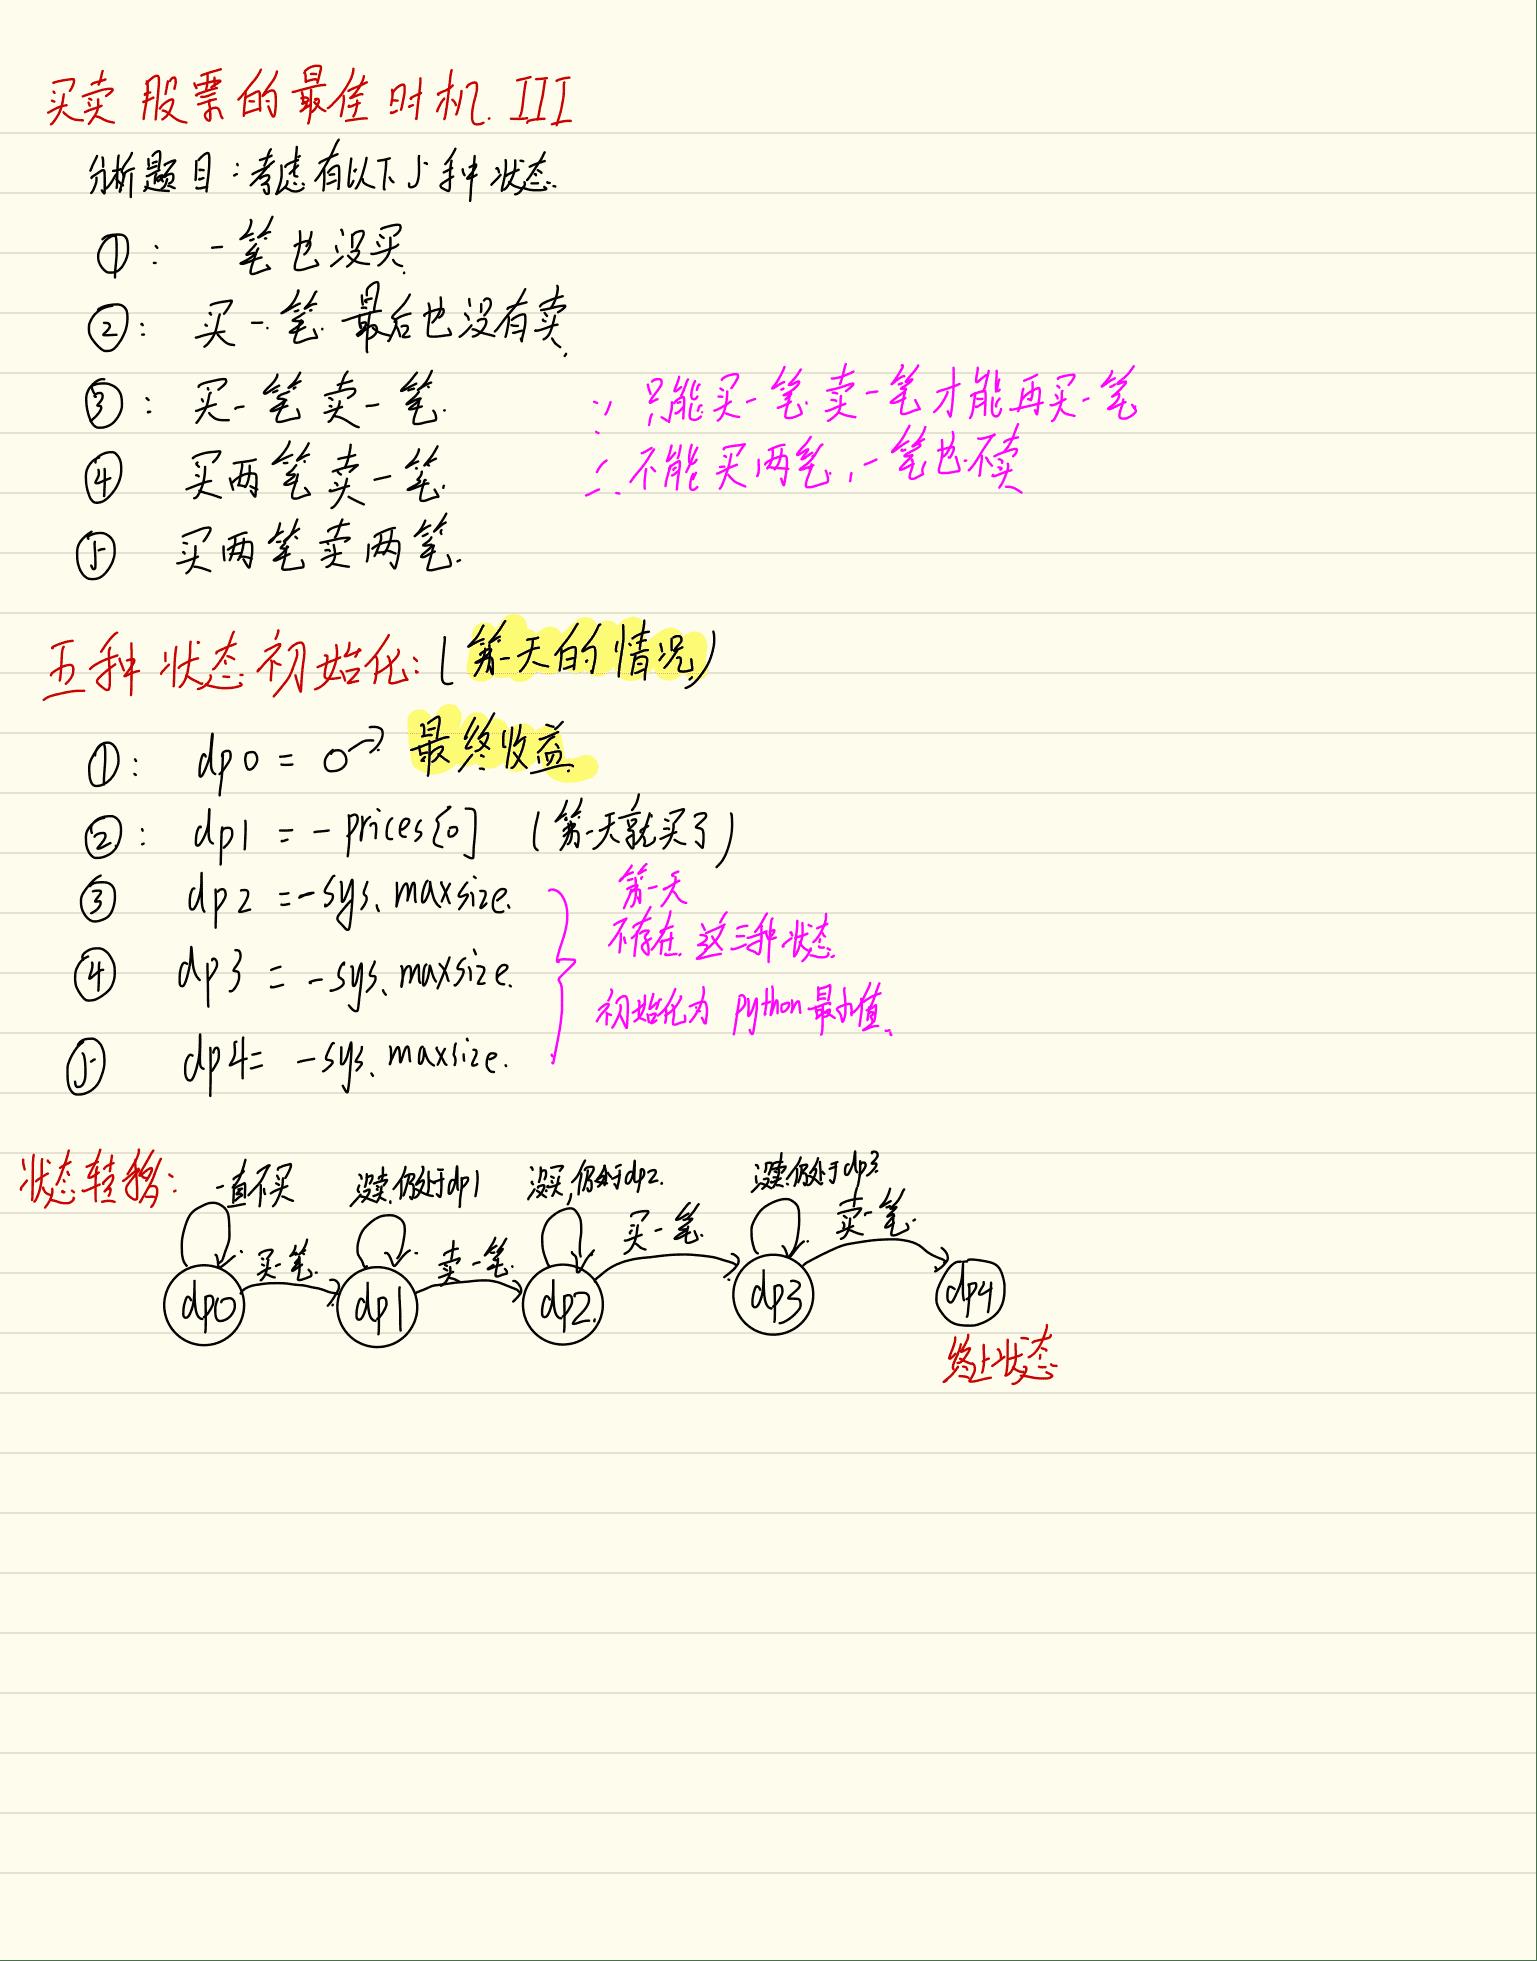 买卖股票的最佳时机 III
分析题目:考虑有以下5种状态.
①: 一笔也没买.
②: 买一笔 最后也没有卖.
③: 买一笔卖一笔.
∵ 只能买一笔卖一笔才能再买一笔
④ 买两笔卖一笔.
∴ 不能买两笔,一笔也不卖
⑤ 买两笔卖两笔.
五种状态初始化:(第一天的情况)
①: dp0 = 0→最终收益.
②: dp1 = -prices[0] (第一天就买了)
③ dp2 = -sys.maxsize.
第一天
不存在这三种状态.
④ dp3 = -sys.maxsize.
初始化为 python最小值.
⑤ dp4 = -sys.maxsize.
状态转移:
一直不买
没卖,仍处于dp1
没买,仍处于dp2.
没卖仍处于dp3.
买一笔.
卖一笔.
买一笔.
卖一笔.
dp0
dp1
dp2.
dp3
dp4
终止状态